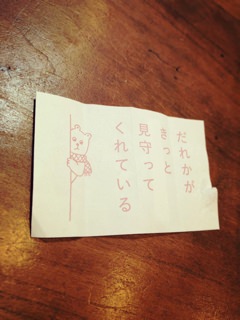 だれかが
きっと
見守って
くれている